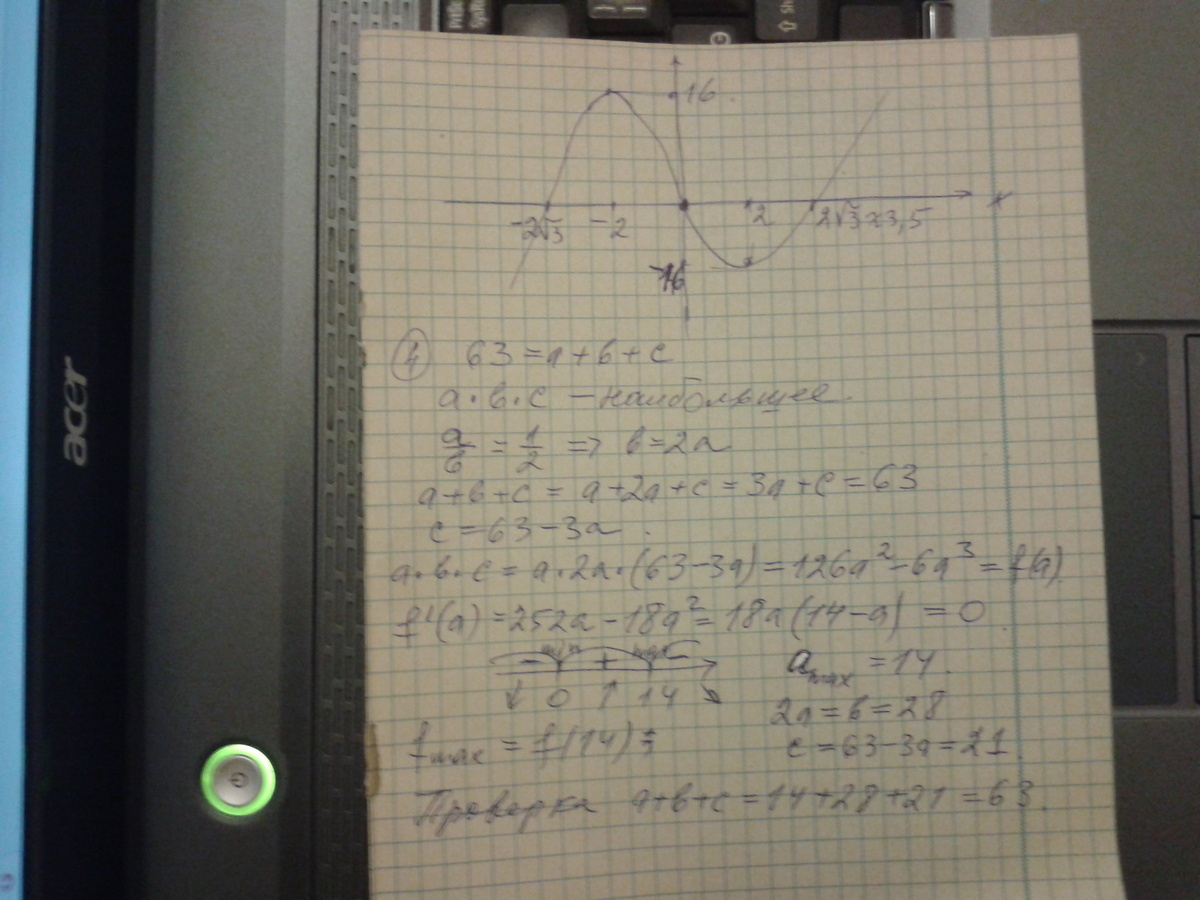 acer
16
-2√3 -2 2 2√3≈3,5 x
-16
④ 63 = a + b + c
a·b·c – наибольшее.
a/b = 1/2 => b = 2a
a+b+c = a+2a+c = 3a+c = 63
c = 63-3a.
a·b·c = a·2a·(63-3a) = 126a² - 6a³ = f(a)
f'(a) = 252a - 18a² = 18a(14-a) = 0.
- min + max -
↓ 0 ↑ 14 ↘
a max = 14.
2a = b = 28
f max = f(14) =
c = 63-3a = 21.
Проверка a+b+c = 14+28+21 = 63.